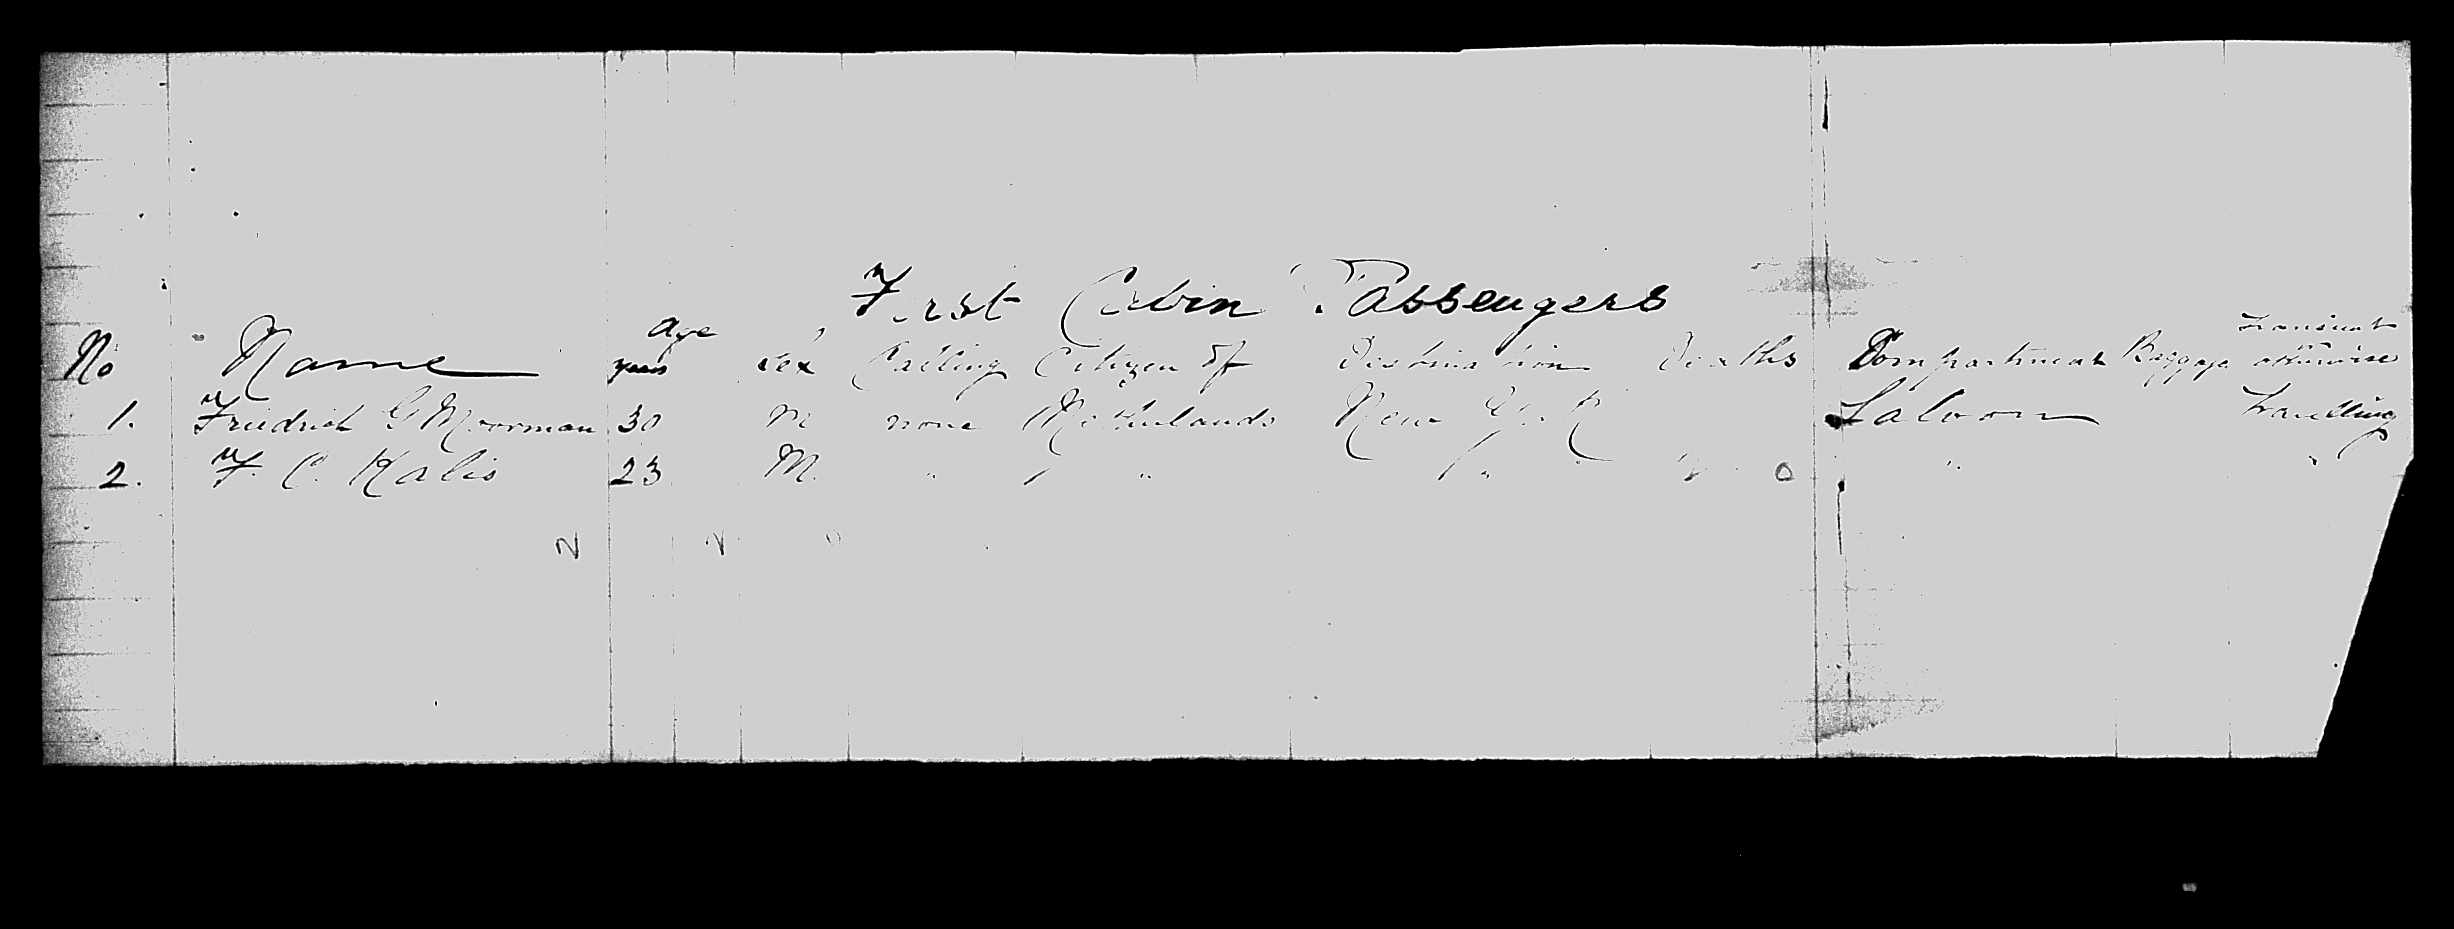 First Cabin Passengers
No Name Age years Sex Calling Citizen of Destination Deaths Compartment Baggage Transient otherwise
1. Friedrich G Moorman 30 M none Netherlands New York Saloon Travelling
2. F. C. Kalis 23 M. " " " 0 " "
2 2 0